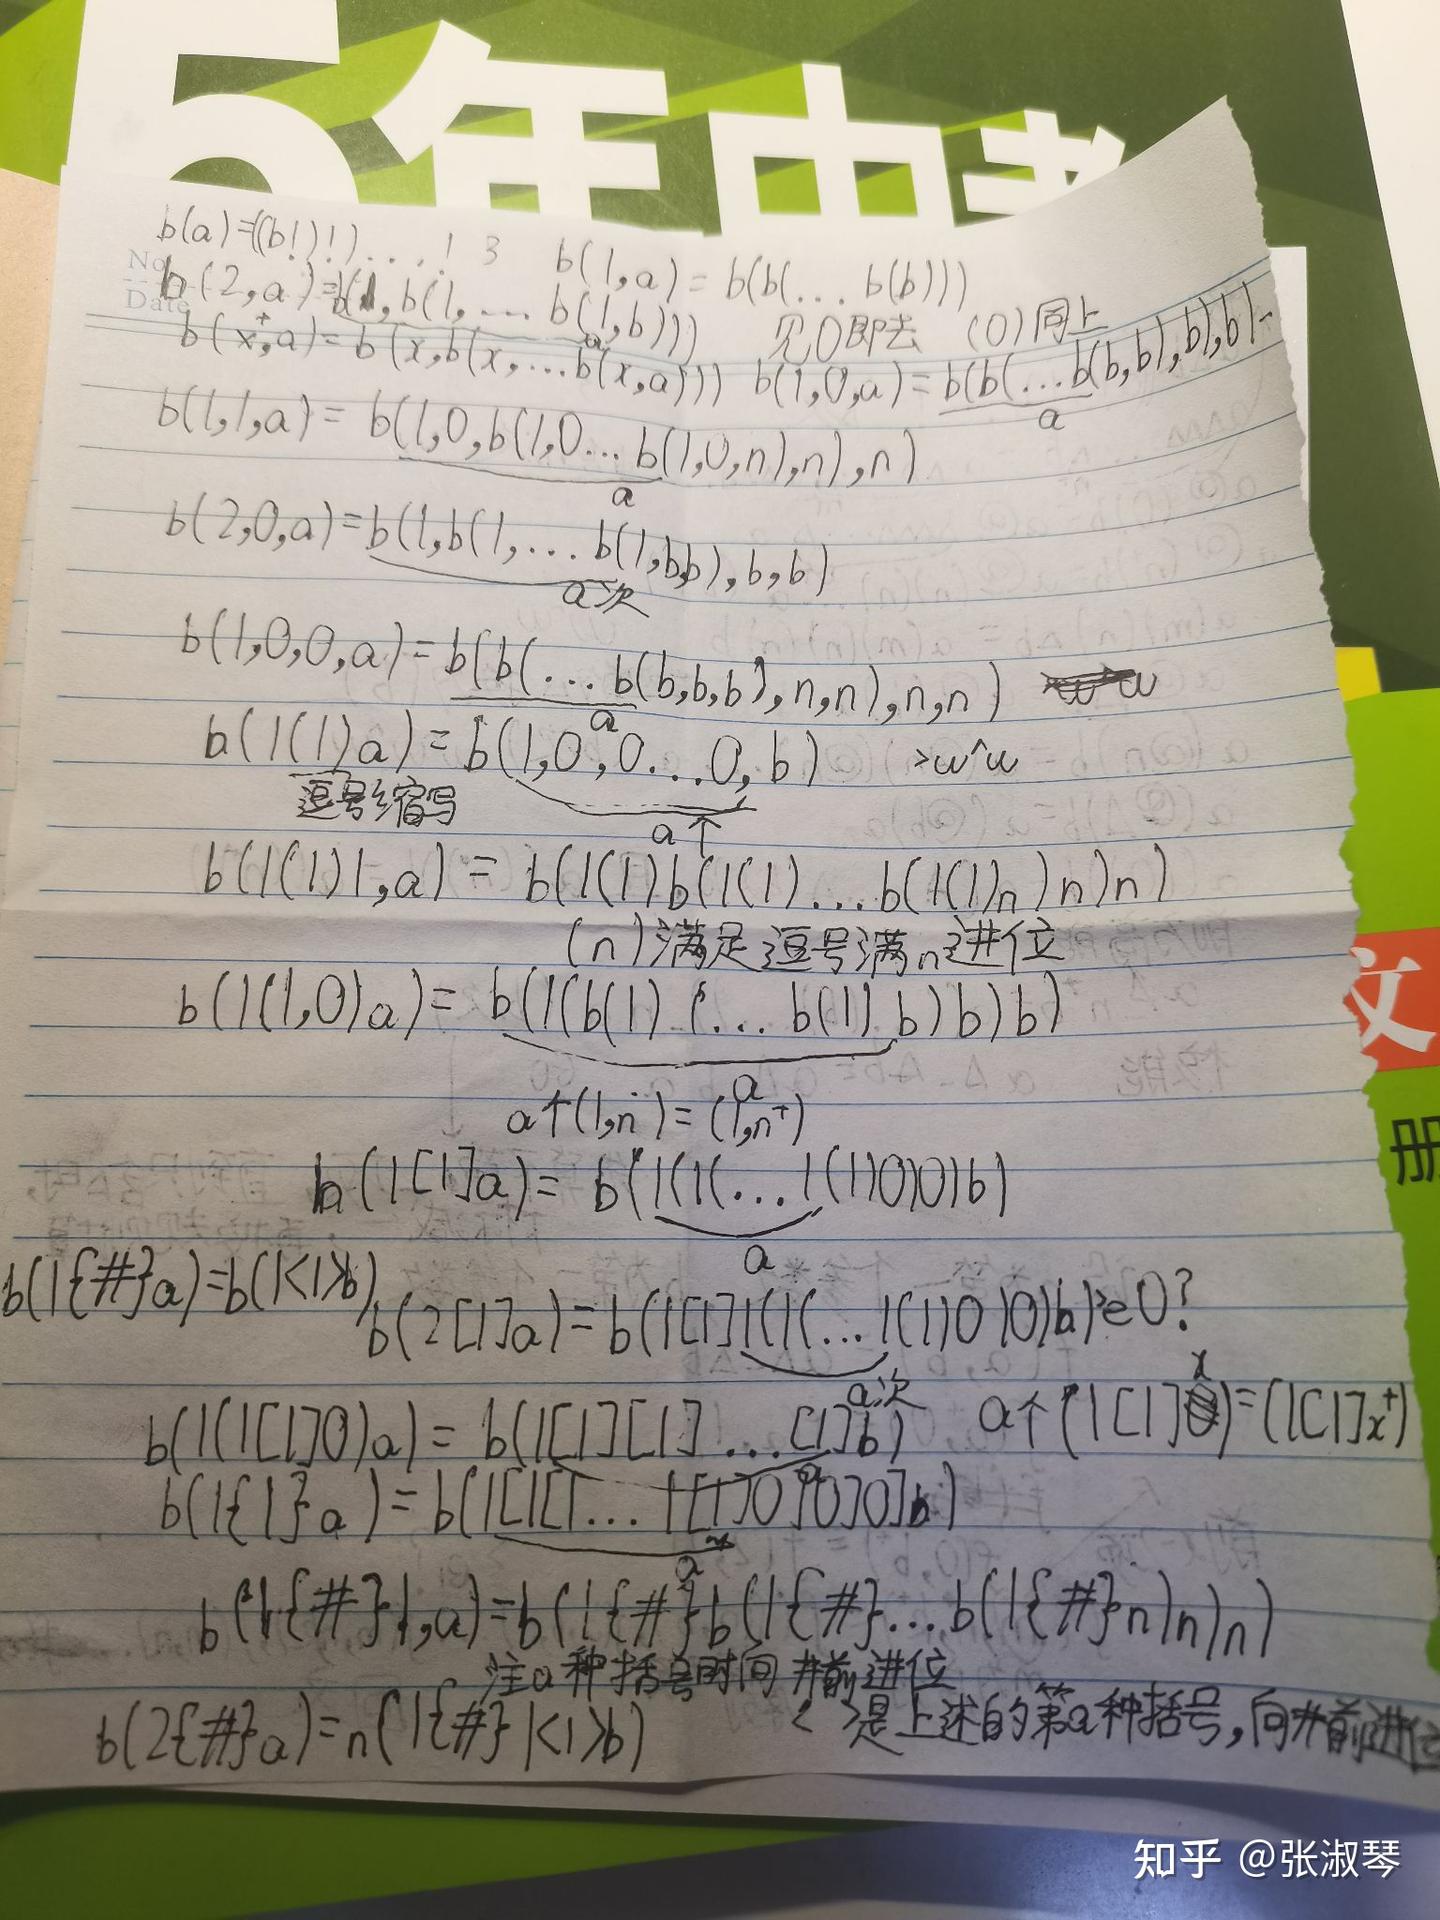 5年中考
b(a)=((b!)!)...! 3 b(1,a)=b(b(...b(b)))
No
Date
b(2,a)=b(1,b(1,...b(1,b))) 见0即去 (0)同上
b(x⁺,a)=b(x,b(x,...b(x,a))) b(1,0,a)=b(b(...b(b,b),b),b)
a
b(1,1,a)=b(1,0,b(1,0...b(1,0,n),n),n)
a
b(2,0,a)=b(1,b(1,...b(1,b,b),b,b)
a次
b(1,0,0,a)=b(b(...b(b,b,b),n,n),n,n) w
a
b(1(1)a)=b(1,0,0...0,b) >w^w
逗号缩写
a个
b(1(1)1,a)=b(1(1)b(1(1)...b(1(1)n)n)n)
(n)满足逗号满n进位
b(1(1,0)a)=b(1(b(1)(...b(1)b)b)b)
a
a个(1,n)=(1,n⁺)
b(1[1]a)=b(1(1(...1(1)0)0)b)
a
b(1{#}a)=b(1<1>b)
b(2[1]a)=b(1[1]1(1(...1(1)0)0)b)>e0?
a次
b(1(1[1]0)a)=b(1[1][1]...[1]b) a个(1[1]x)=(1[1]x⁺)
a
b(1{1}a)=b(1[1[1...1[1]0]0]0]b)
a
b(1{#}1,a)=b(1{#}b(1{#}...b(1{#}n)n)n)
注a种括号时间#前进位
b(2{#}a)=n(1{#}1<1>b) < >是上述的第a种括号,向#前进位
文
册
知乎 @张淑琴